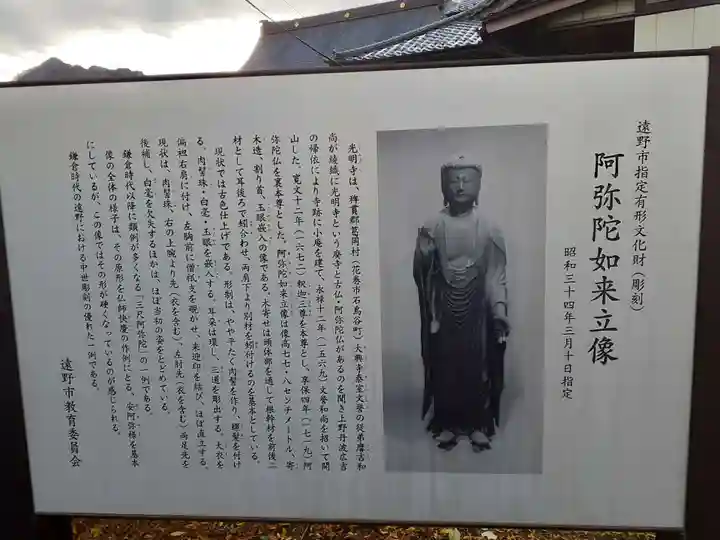 遠野市指定有形文化財（彫刻）
阿弥陀如来立像
昭和三十四年三月十日指定
光明寺は、稗貫郡葛岡村（花巻市石鳥谷町）大興寺泰室文誉の従弟磨吉和
尚が綾織に光明寺という廃寺と古仏・阿弥陀仏があるのを聞き上野丹波広吉
の帰依により寺跡に小庵を建て、永禄十二年（一五六九）文誉和尚を招いて開
山した。寛文十二年（一六七二）釈迦三尊を本尊とし、享保四年（一七一九）阿
弥陀仏を裏本尊とした。阿弥陀如来立像は像高七七・八センチメートル、寄
木造、割り首、玉眼嵌入の像である。木寄せは頭体部を通して根幹材を前後二
材として耳後ろで矧合わせ、両肩下より別材を矧付けるのを基本としている。
現状では古色仕上げである。形制は、やや平たく肉髻を作り、螺髪を付け
る。肉髻珠・白毫・玉眼を嵌入する。耳朶は環し、三道を彫出する。大衣を
偏袒右肩に付け、左胸前に僧祇支を覗かせ、来迎印を結び、ほぼ直立する。
現状は、肉髻珠、右の上腕より先（衣を含む）、左肘先（衣を含む）両足先を
後補し、白毫を欠失するほかは、ほぼ当初の姿をとどめている。
鎌倉時代以降に類例が多くなる「三尺阿弥陀」の一例である。
像の全体の様子は、その原形を仏師快慶の作例にとる、安阿弥様を基本
にしているが、この像ではその形が硬くなっているのが感じられる。
鎌倉時代の遠野における中世彫刻の優れた一例である。
遠野市教育委員会